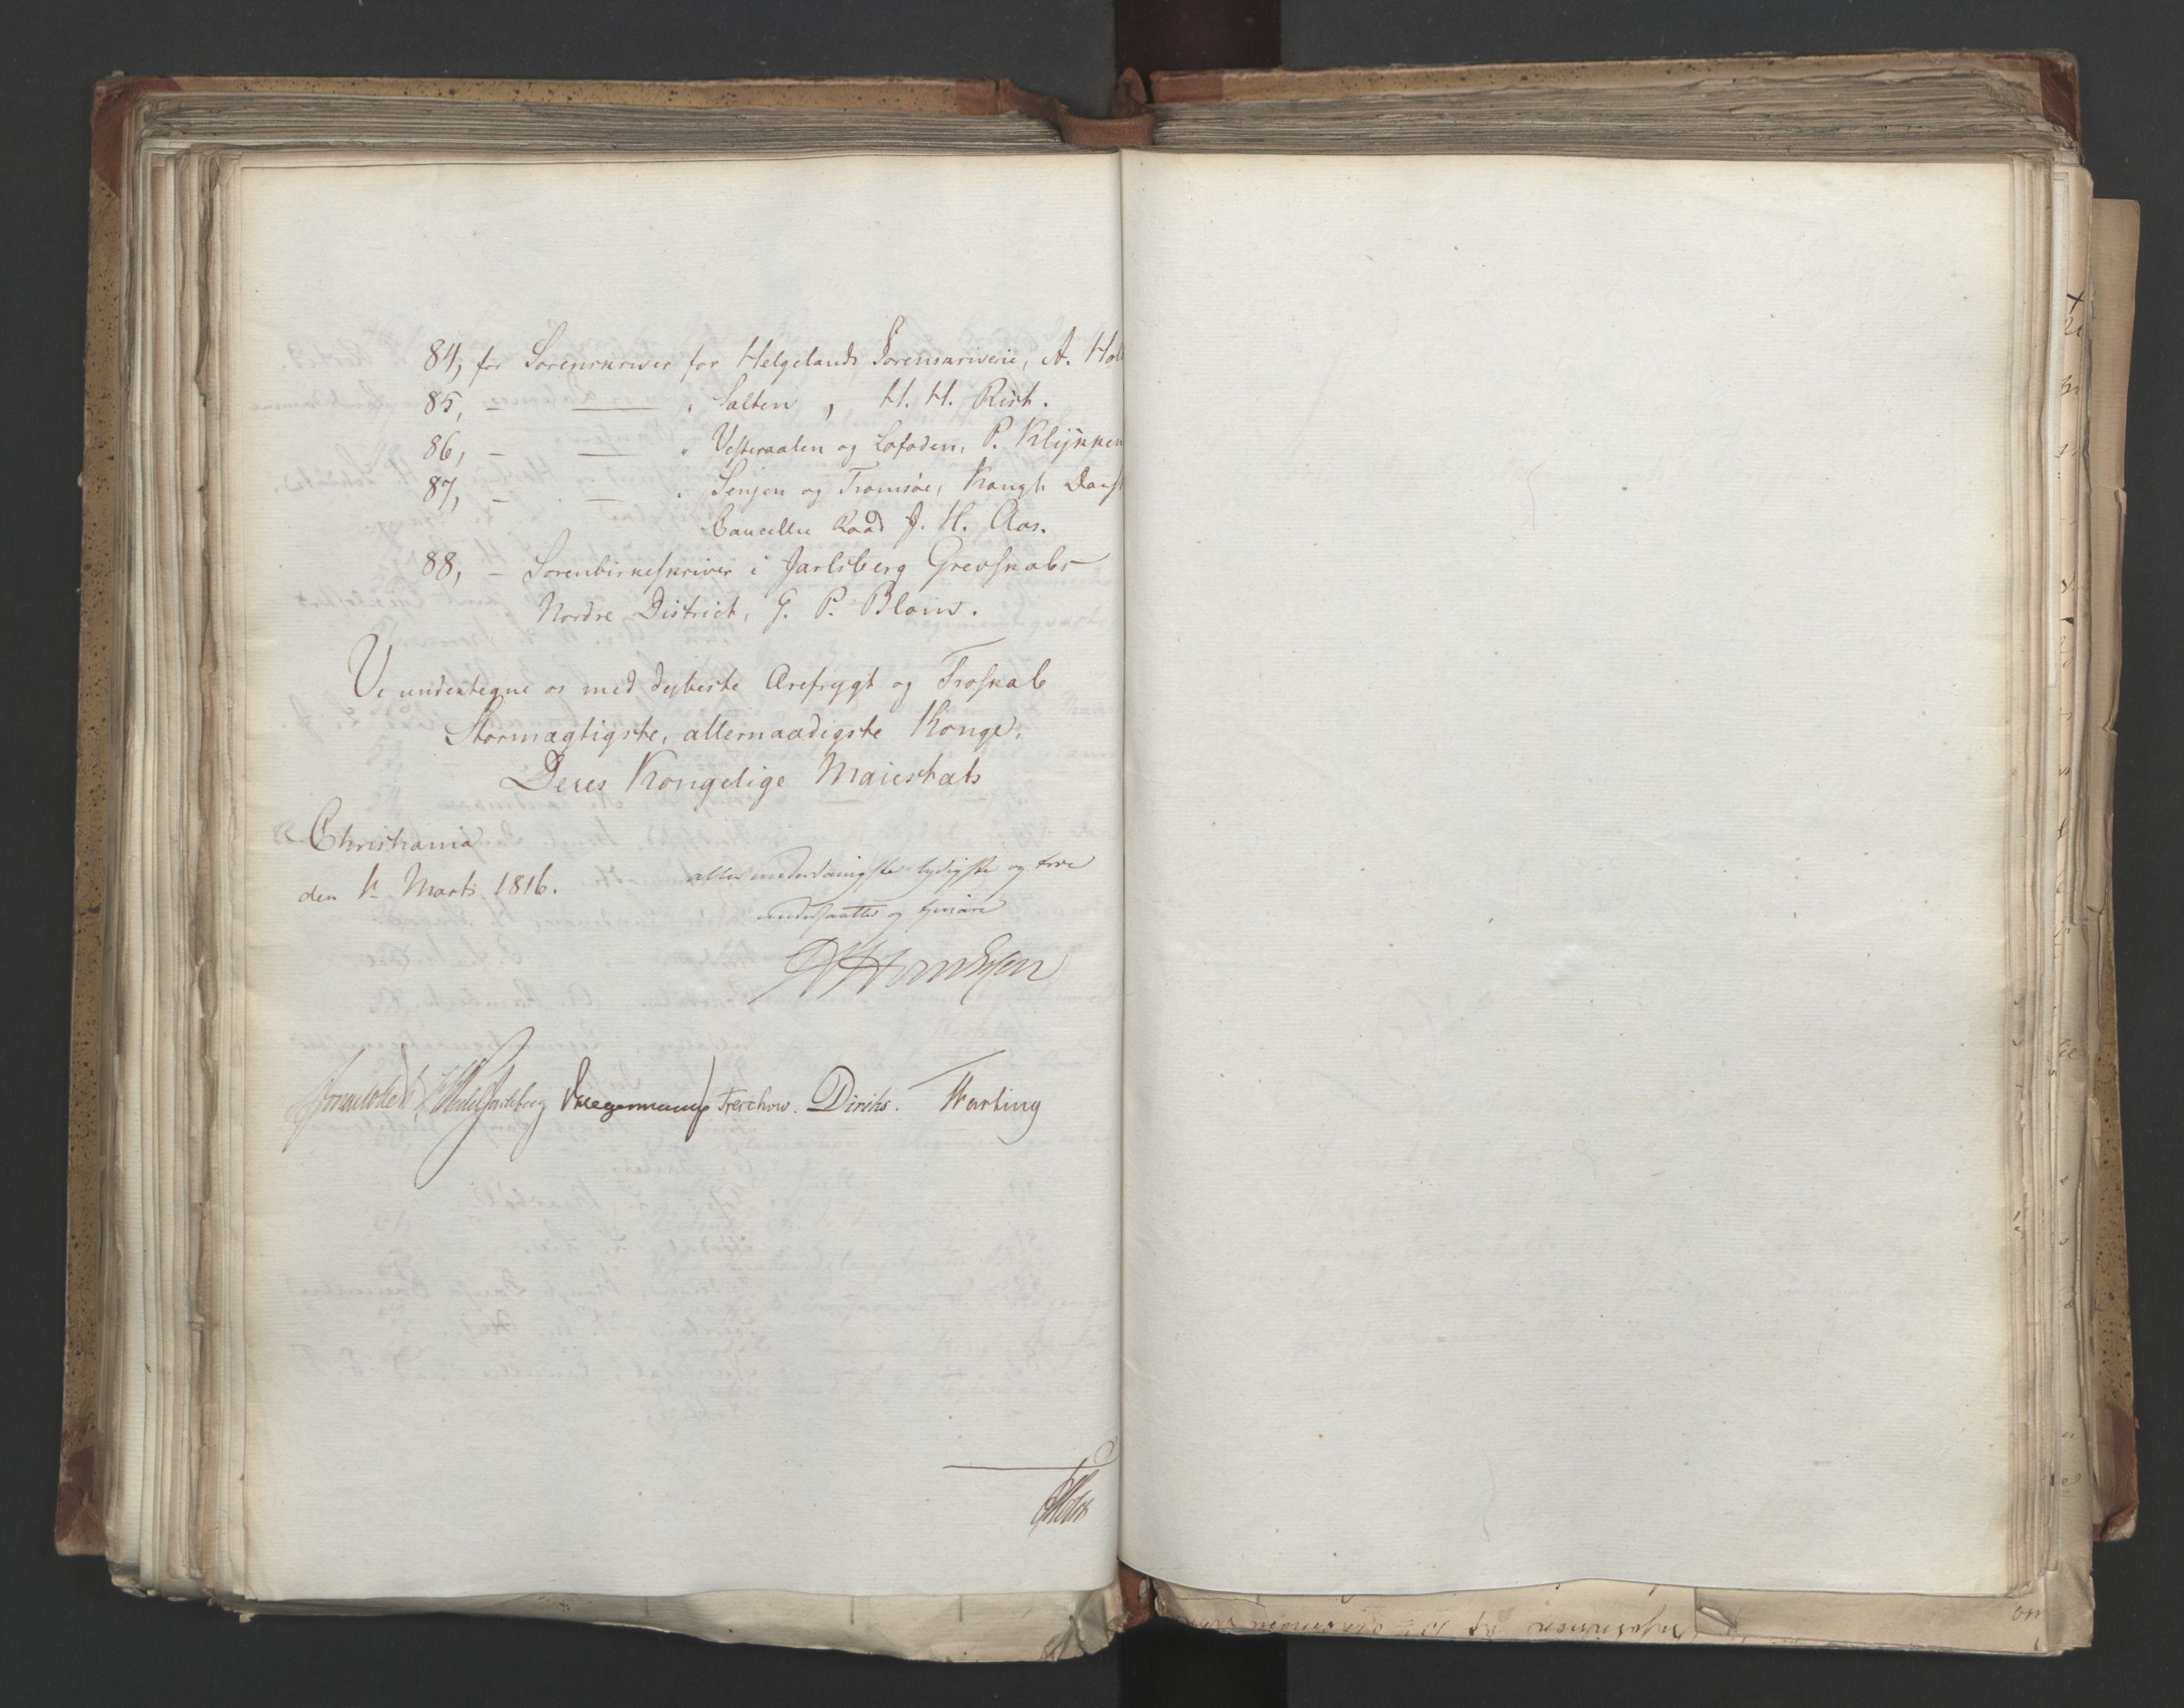 84, for Sorenskriver for Helgelands Sorenskriverie, A. Hol
85, - — " Salten, H. H. Rist.
86, - — " Vesteraalen og Lofoden, P. Klykken
87, - — " Senjen og Tromsøe, Kongl. Dansk
Cancellie Raad J. H. Aas.
88, - Sorenbirkeskriver i Jarlsberg Grevskabs
Nordre District, G. P. Blom.
Vi undertegne os med dybeste Ærefrygt og Troskab
Stormægtigste, allernaadigste Konge,
Deres Kongelige Maiestæts
Christiania
den Marts 1816.
allerunderdanigste lydigste og troe
undersaatter og tienere
Sommerhielm Wedel Jarlsberg Krefting Treschow. Diriks.